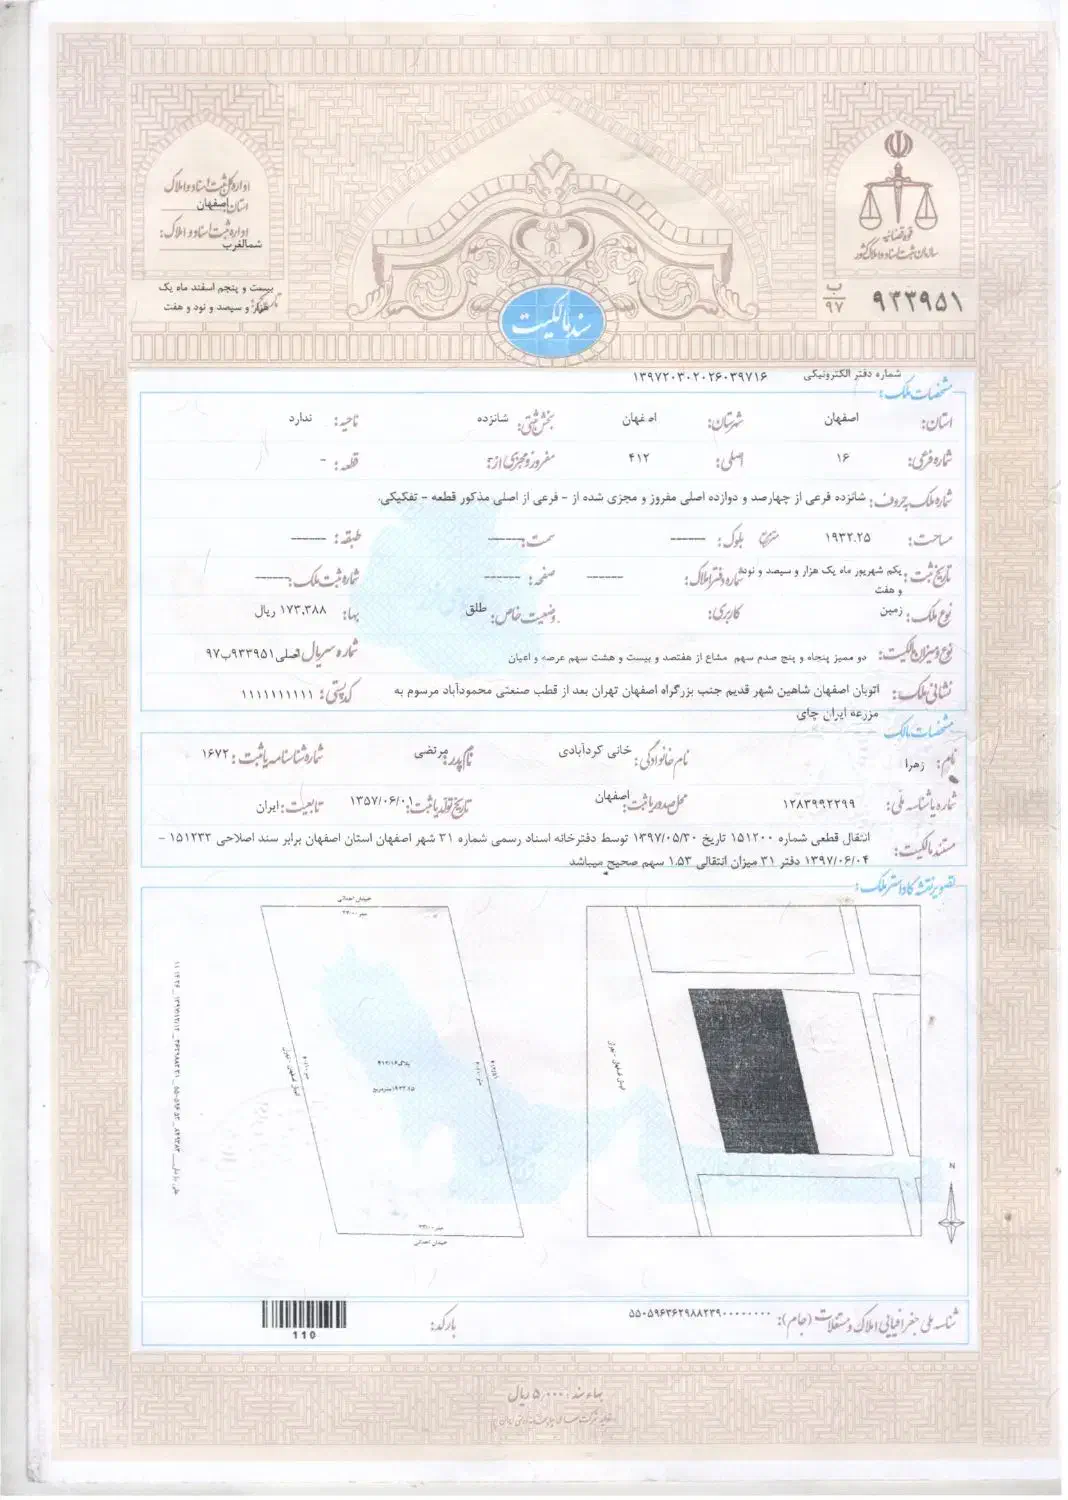 اداره کل ثبت اسناد و املاک
استان اصفهان
اداره ثبت اسناد و املاک:
شمالغرب
بیست و پنجم اسفند ماه یک
هزار و سیصد و نود و هفت
قوه قضائیه
سازمان ثبت اسناد و املاک کشور
ب
۹۷
۹۳۳۹۵۱
سند مالکیت
شماره دفتر الکترونیکی ۱۳۹۷۲۰۳۰۲۰۲۶۰۳۹۷۱۶
مشخصات ملک:
استان: اصفهان شهرستان: اصفهان بخش ثبتی: شانزده ناحیه: ندارد
شماره فرعی: ۱۶ اصلی: ۴۱۲ مفروز و مجزی از: قطعه: -
شماره ملک بحروف: شانزده فرعی از چهارصد و دوازده اصلی مفروز و مجزی شده از - فرعی از اصلی مذکور قطعه - تفکیکی.
مساحت: ۱۹۳۲.۲۵ بلوک: ------ سمت: ------ طبقه: ------
تاریخ ثبت: یکم شهریور ماه یک هزار و سیصد و نود و هفت شماره دفتر املاک: ------ صفحه: ------ شماره ثبت ملک: ------
نوع ملک: زمین کاربری: وضعیت خاص: طلق بها: ۱۷۳,۳۸۸ ریال
نوع و میزان مالکیت: دو ممیز پنجاه و پنج صدم سهم مشاع از هفتصد و بیست و هشت سهم عرصه و اعیان شماره سریال اصلی ۹۳۳۹۵۱ب۹۷
نشانی ملک: اتوبان اصفهان شاهین شهر قدیم جنب بزرگراه اصفهان تهران بعد از قطب صنعتی محمودآباد مرسوم به کد پستی: ۱۱۱۱۱۱۱۱۱۱
مزرعه ایران چای
مشخصات مالک
نام: زهرا نام خانوادگی: خانی کردآبادی نام پدر: مرتضی شماره شناسنامه یا ثبت: ۱۶۷۲
شماره یا شناسه ملی: ۱۲۸۳۹۹۲۲۹۹ محل صدور یا ثبت: اصفهان تاریخ تولد یا ثبت: ۱۳۵۷/۰۶/۰۱ تابعیت: ایران
مستند مالکیت: انتقال قطعی شماره ۱۵۱۲۰۰ تاریخ ۱۳۹۷/۰۵/۳۰ توسط دفترخانه اسناد رسمی شماره ۳۱ شهر اصفهان استان اصفهان برابر سند اصلاحی ۱۵۱۲۳۳ -
۱۳۹۷/۰۶/۰۴ دفتر ۳۱ میزان انتقالی ۱.۵۳ سهم صحیح میباشد
تصویر نقشه کاداستر ملک:
خیابان احداثی
پلاک ۴۱۲/۱۶
خیابان احداثی
N
شناسه ملی جغرافیایی املاک و مستغلات (جام): ۵۵۰۵۹۶۳۶۲۹۸۸۲۳۹۰۰۰۰۰۰۰۰
بارکد:
110
بهاء سند: ۵,۰۰۰ ریال